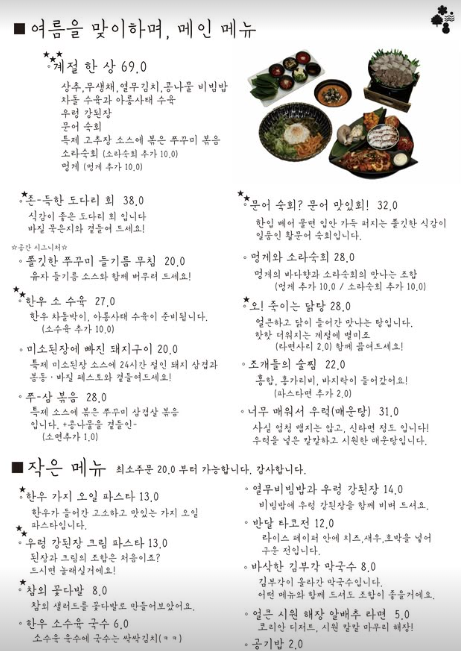 ■ 여름을 맞이하며, 메인 메뉴
★★★ ◦계절 한 상 69.0
상추,무생채,열무김치,콩나물 비빔밥
차돌 수육과 아롱사태 수육
우렁 강된장
문어 숙회
특제 고추장 소스에 볶은 쭈꾸미 볶음
소라숙회 (소라숙회 추가 10.0)
멍게 (멍게 추가 10.0)
★ ◦존-득한 도다리 회 38.0
식감이 좋은 도다리 회 입니다
바질 묵은지와 곁들여 드세요!
☆공간 시그니처☆
◦쫄깃한 쭈꾸미 들기름 무침 20.0
유자 들기름 소스와 함께 버무려 드세요!
★★ ◦한우 소 수육 27.0
한우 차돌박이, 아롱사태 수육이 준비됩니다.
(소수육 추가 10.0)
◦미소된장에 빠진 돼지구이 20.0
특제 미소된장 소스에 24시간 절인 돼지 삼겹과
봄동·바질 페스토와 곁들여드세요!
◦쭈-삼 볶음 28.0
특제 소스에 볶은 쭈꾸미 삼겹살 볶음
입니다. +콩나물을 곁들인-
(소면추가 1.0)
★★ ◦문어 숙회? 문어 맛있회! 32.0
한입 베어 물면 입안 가득 퍼지는 쫄깃한 식감이
일품인 활문어 숙회입니다.
◦멍게와 소라숙회 28.0
멍게의 바다향과 소라숙회의 만나는 조합
(멍게 추가 10.0 / 소라숙회 추가 10.0)
★ ◦오! 죽이는 닭탕 28.0
얼큰하고 닭이 들어간 맛나는 탕입니다.
(라면사리 2.0) 함께 끓여드세요!
◦조개들의 술찜 22.0
홍합, 홍가리비, 바지락이 들어갔어요!
(파스타면 추가 2.0)
◦너무 매워서 우럭(매운탕) 31.0
사실 엄청 맵지는 않고, 신라면 정도 입니다!
우럭을 넣은 칼칼하고 시원한 매운탕입니다.
■ 작은 메뉴 최소주문 20.0 부터 가능합니다, 감사합니다.
★ ◦한우 가지 오일 파스타 13.0
한우가 들어간 고소하고 맛있는 가지 오일
파스타입니다.
★★ ◦우렁 강된장 크림 파스타 13.0
된장과 크림의 조합은 처음이죠?
드시면 놀래실거에요!
★ ◦참외 꽃다발 8.0
참외 샐러드를 꽃다발로 만들어보았어요.
◦한우 소수육 국수 6.0
소수육 육수에 국수는 싹싹김치(ㅋㅋ)
◦열무비빔밥과 우렁 강된장 14.0
비빔밥에 우렁 강된장을 함께 비벼 드셔요.
◦반달 타코전 12.0
라이스 페이퍼 안에 치즈,새우,호박을 넣어
구운 전입니다.
◦바삭한 김부각 막국수 8.0
김부각이 올라간 막국수입니다.
어떤 메뉴와 함께 드셔도 조합이 좋을거에요.
◦얼큰 시원 해장 알배추 라면 5.0
코리안 디저트, 시원 칼칼 마무리 해장!
◦공기밥 2.0